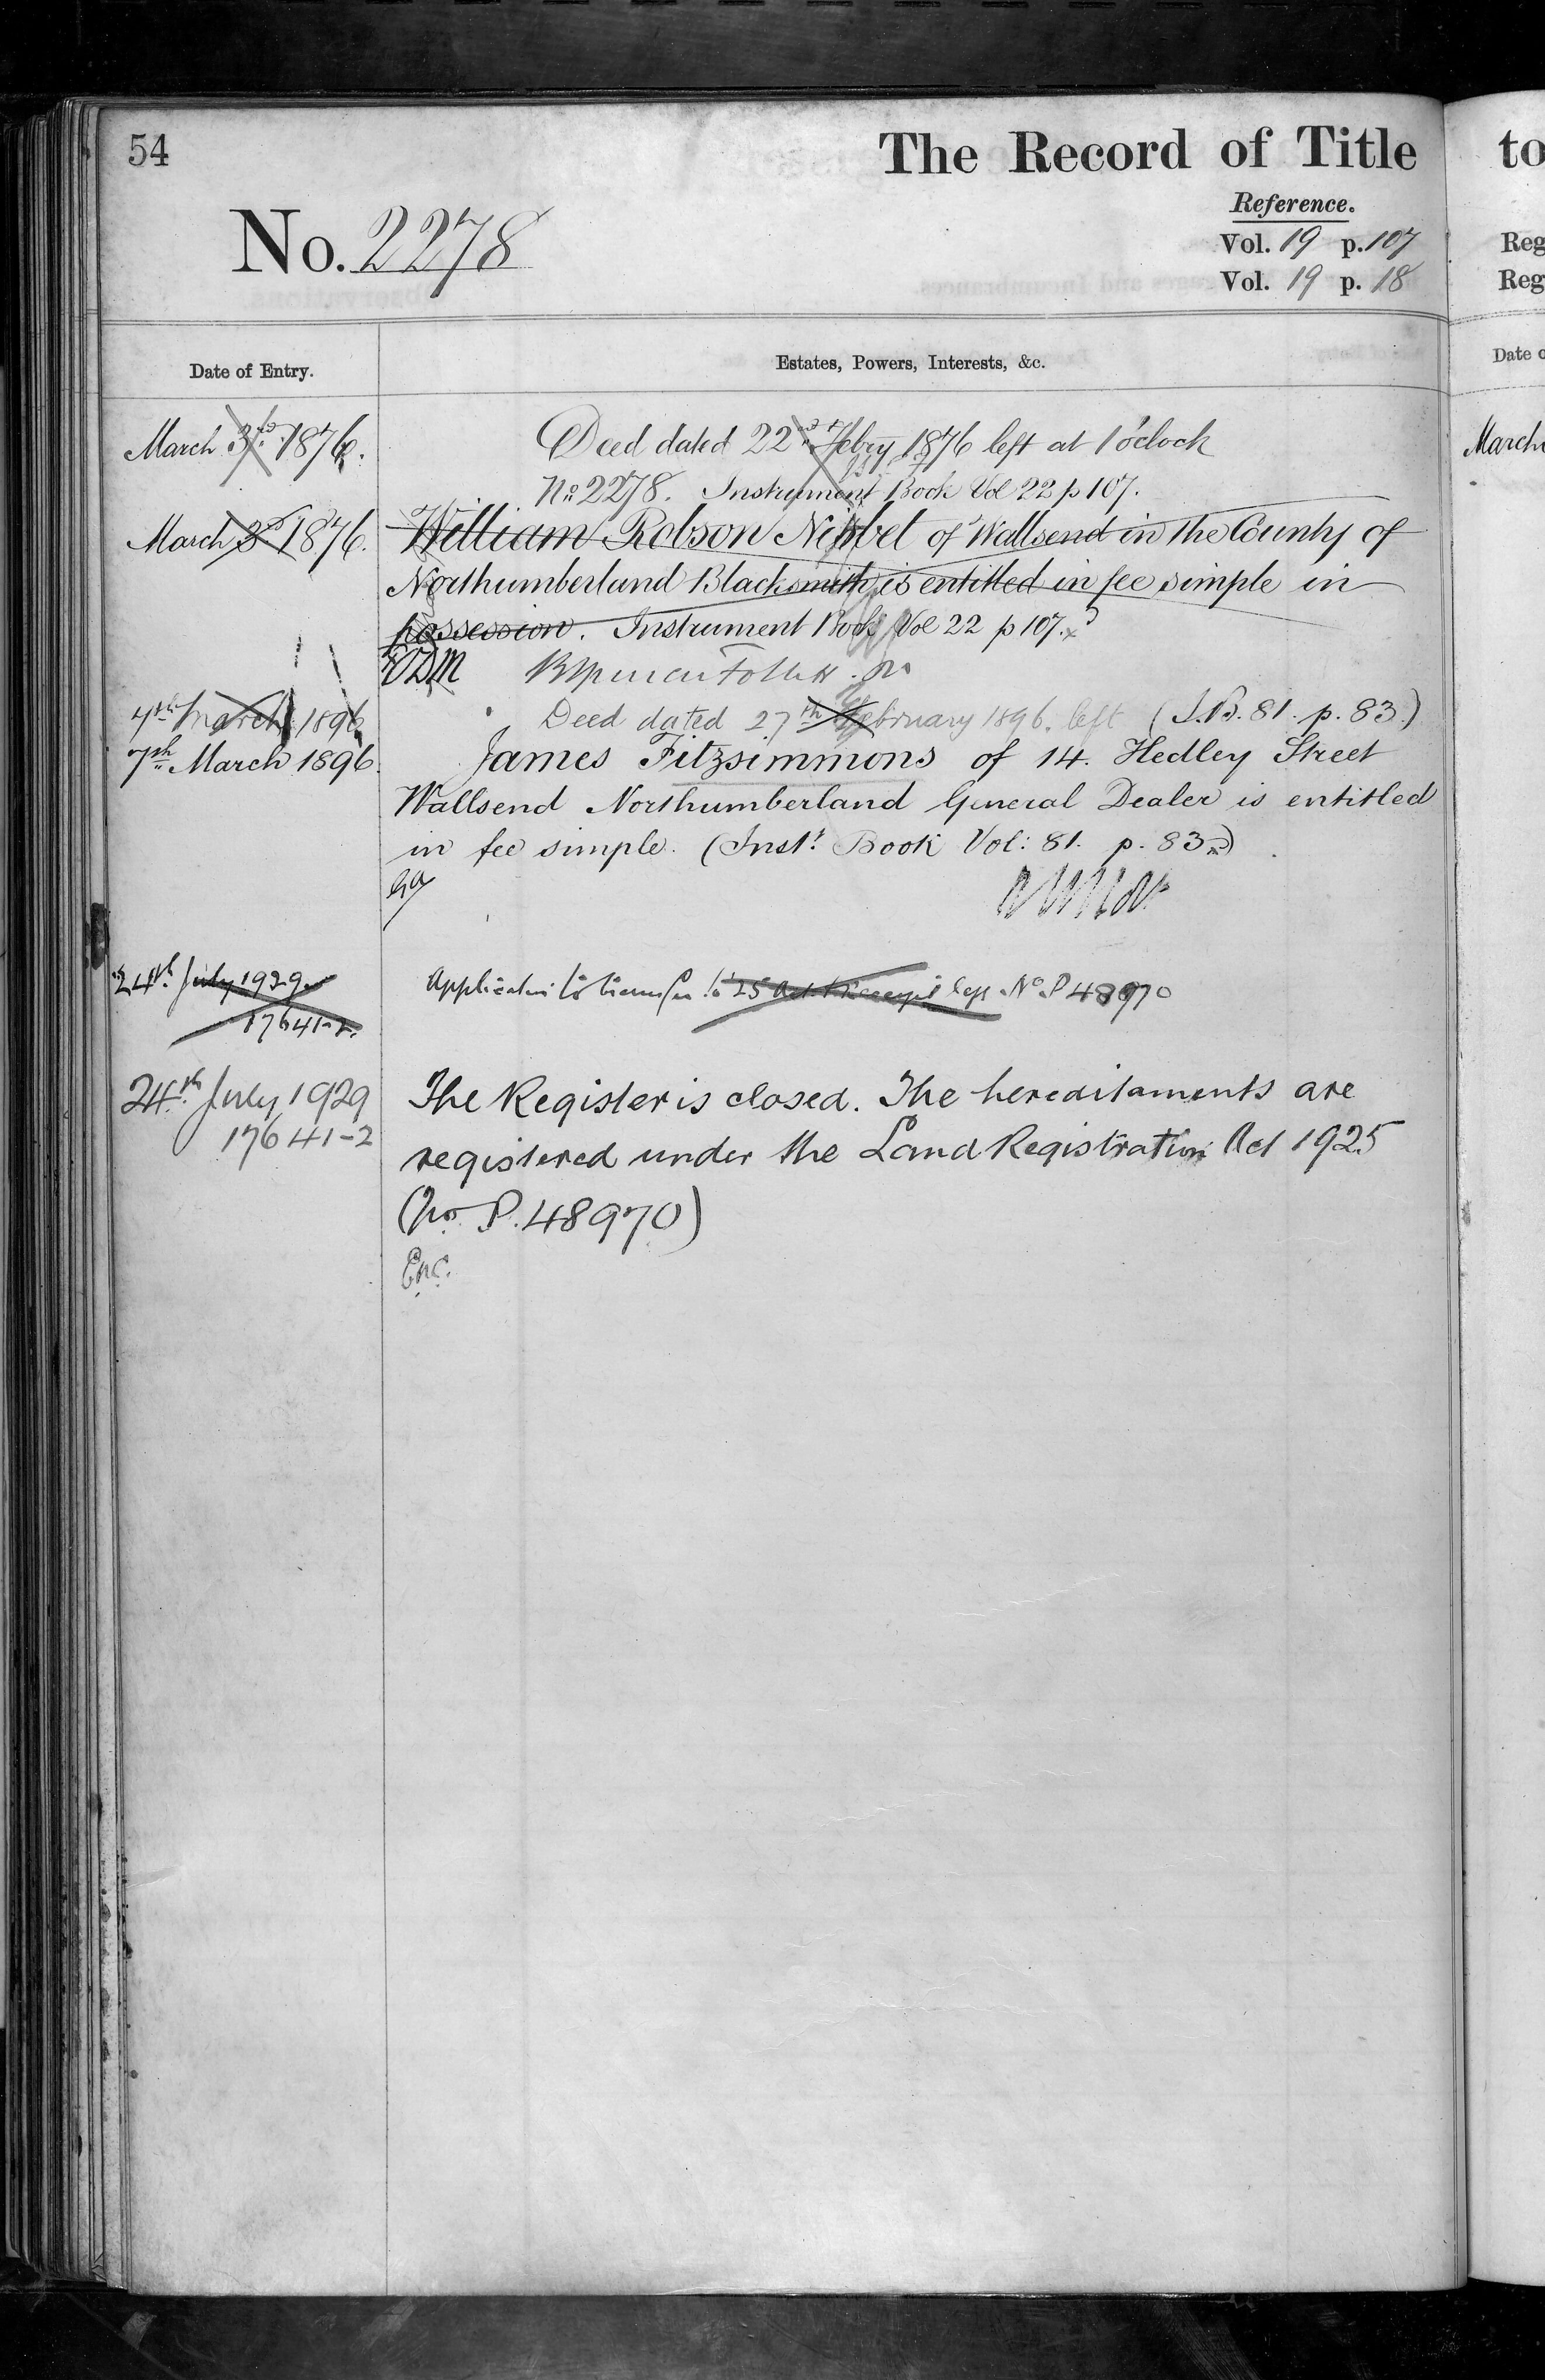 54
The Record of Title
Reference.
No. 2278
Vol. 19 p. 107
Vol. 19 p. 18
Date of Entry.
Estates, Powers, Interests, &c.
March 3rd 1876.
Deed dated 22nd Febry 1876 left at 1 o'clock
No 2278. Instrument Book Vol 22 p 107.
March 3rd 1876.
William Robson Nisbet of Wallsend in the County of
Northumberland Blacksmith is entitled in fee simple in
possession. Instrument Book Vol 22 p 107.
4th March 1896
Deed dated 27th February 1896. left (I.B. 81. p. 83.)
7th March 1896.
James Fitzsimmons of 14. Hedley Street
Wallsend Northumberland General Dealer is entitled
in fee simple. (Inst. Book Vol: 81. p. 83)
24th July 1929
17641-2.
Application to transfer to '25 Act No. P 48970
24th July 1929
17641-2
The Register is closed. The hereditaments are
registered under the Land Registration Act 1925
(No. P. 48970)
to
Reg
Reg
Date o
March